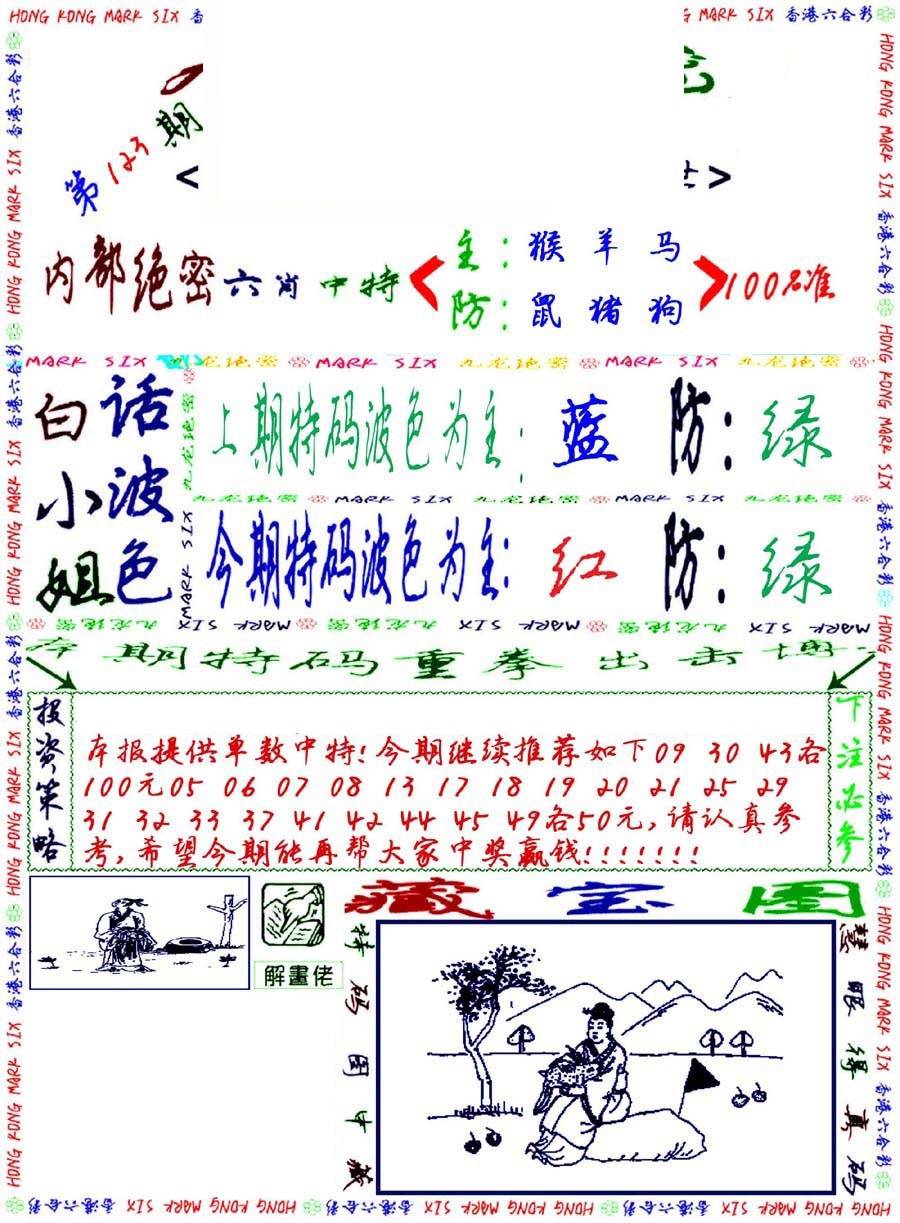 HONG KONG MARK SIX 香
MARK SIX 香港六合彩
第123期
< >
内部绝密六肖中特
主：猴 羊 马
防：鼠 猪 狗
100%准
MARK SIX 九龙绝密 MARK SIX 九龙绝密 MARK SIX 九龙绝密
白话
小波
姐色
上期特码波色为主：蓝 防：绿
九龙绝密 MARK SIX 九龙绝密 MARK SIX 九龙绝密
今期特码波色为主：红 防：绿
九龙绝密 MARK SIX
期特码重拳出击
投资策略
本报提供单数中特！今期继续推荐如下09 30 43各
100元05 06 07 08 13 17 18 19 20 21 25 29
31 32 33 37 41 42 44 45 49各50元，请认真参
考，希望今期能再帮大家中奖赢钱！！！！！！！
下注必参
解畫佬
藏宝图
特码图中藏
慧眼得真码
HONG KONG MARK SIX 香港六合彩